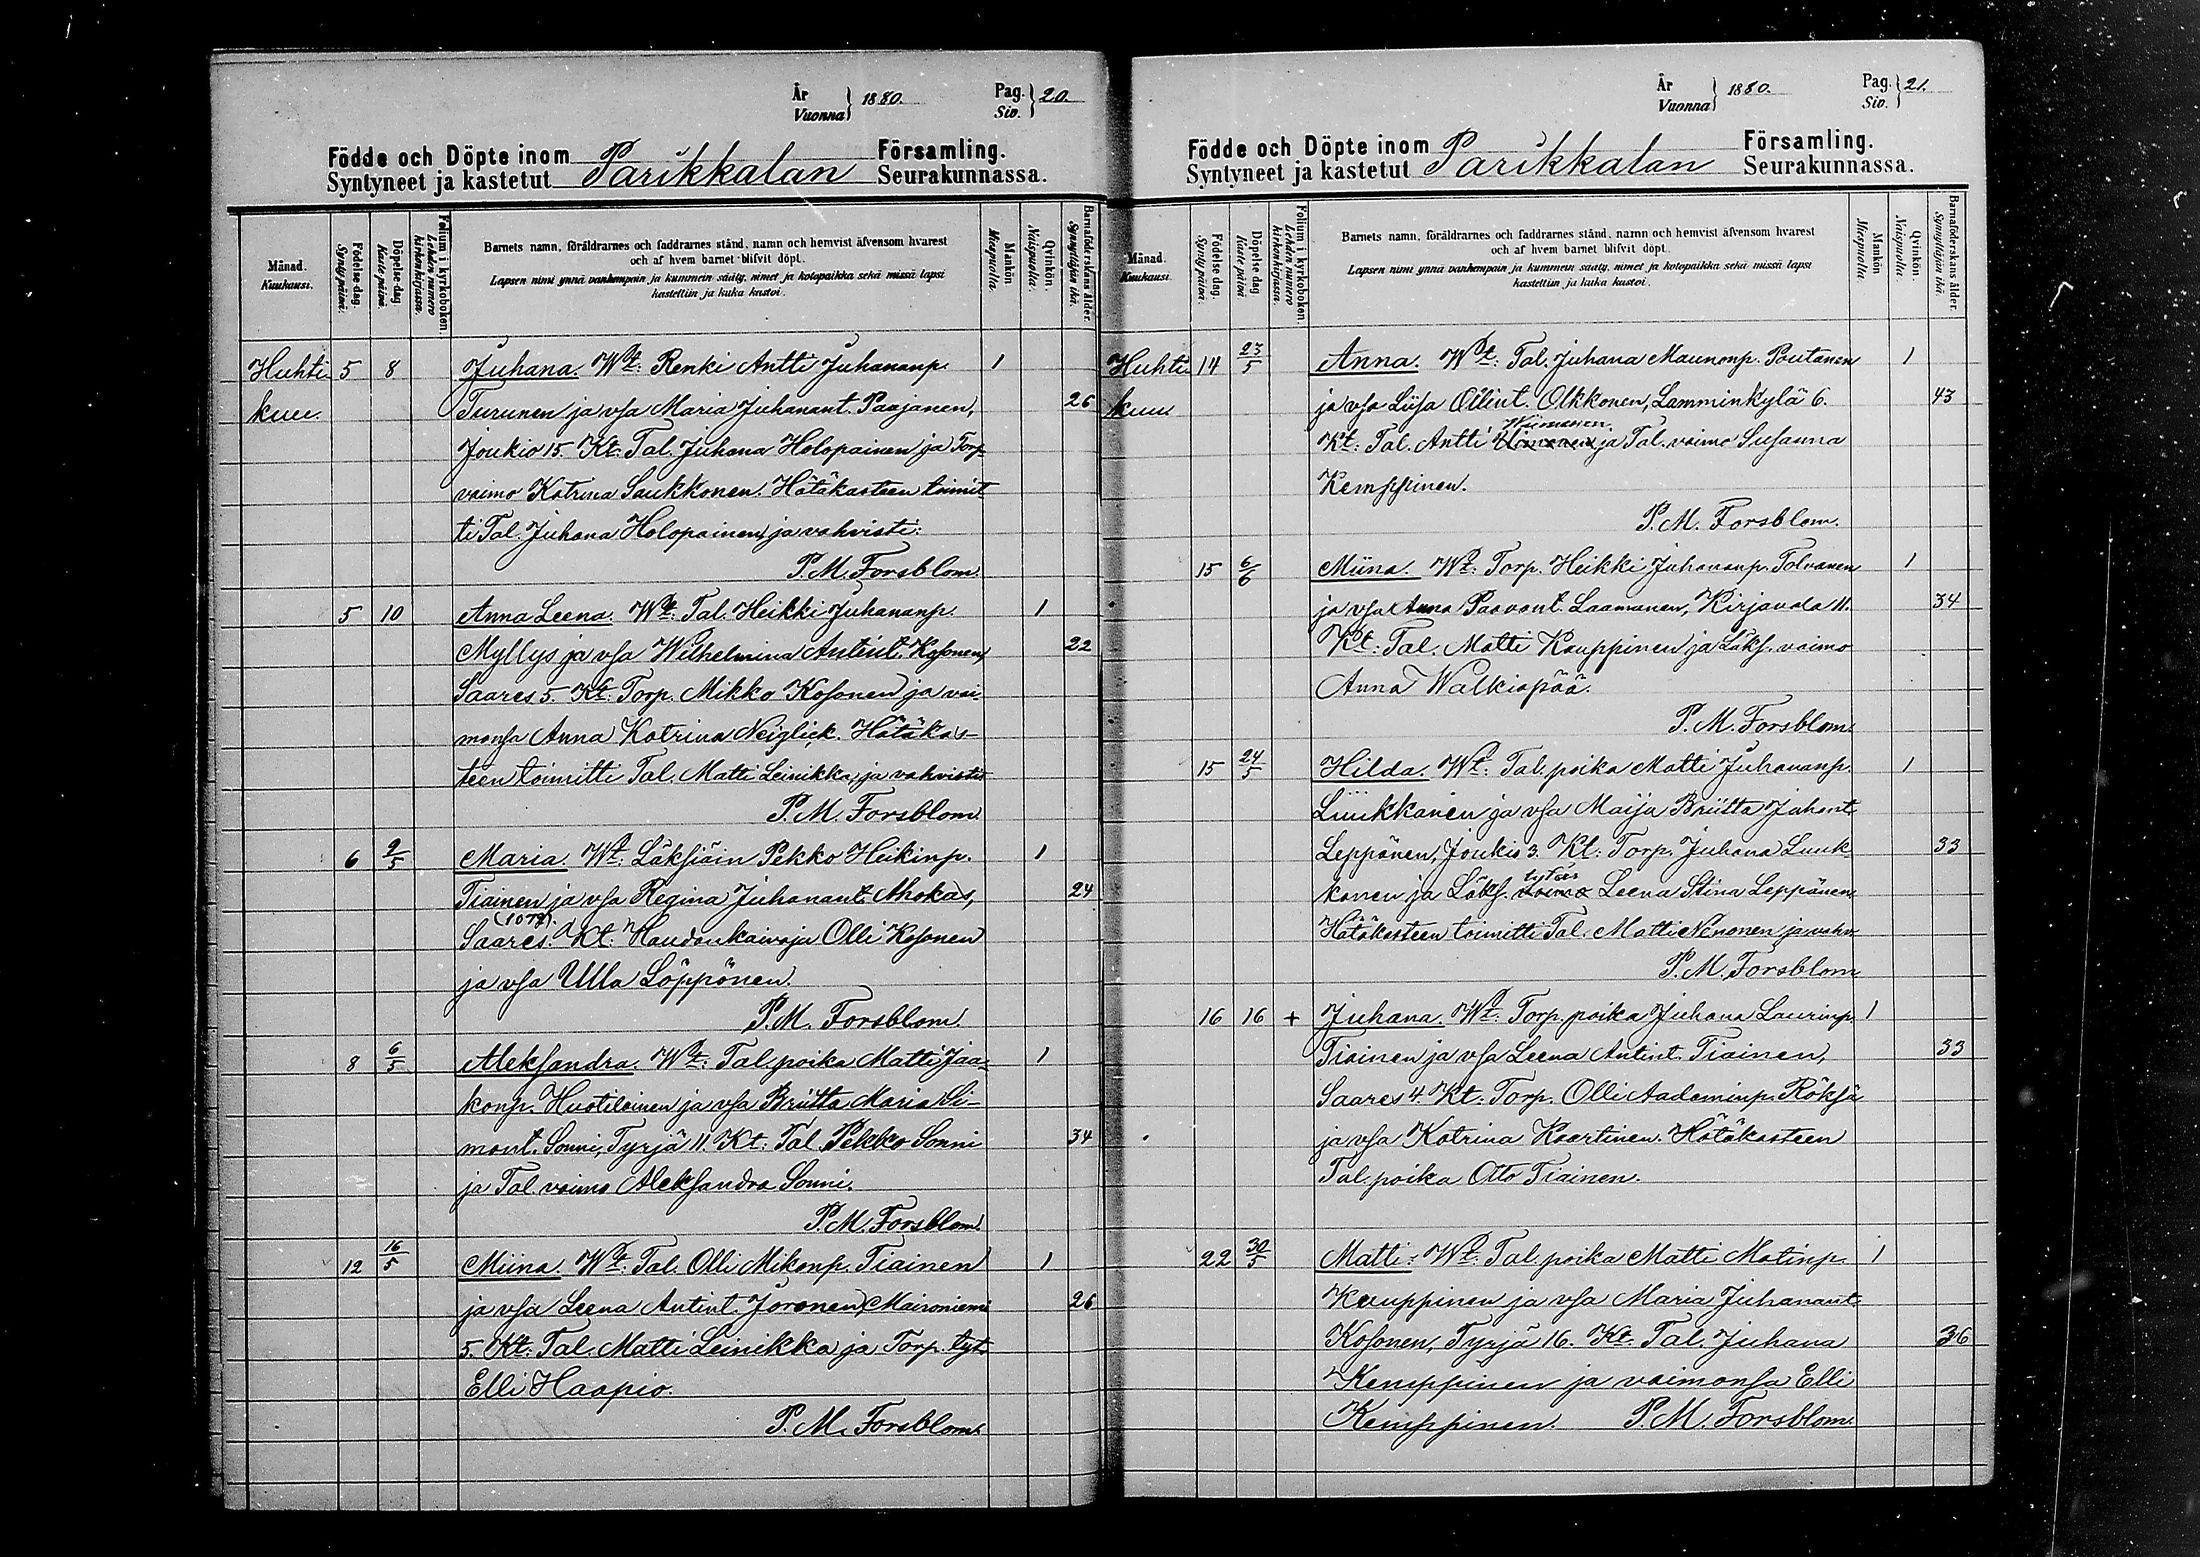 År
Vuonna } 1880.
Pag.
Siv. } 20.
Födde och Döpte inom Parikkalan Församling.
Syntyneet ja kastetut Seurakunnassa.
Månad. Kuukausi.
Födelse dag. Synty päivä.
Döpelse dag Kaste päivä.
Folium i kyrkoboken. Lehden numero kirkonkirjassa.
Barnets namn, föräldrarnes och faddrarnes stånd, namn och hemvist äfvensom hvarest
och af hvem barnet blifvit döpt.
Lapsen nimi ynnä vanhempain ja kummein sääty, nimet ja kotopaikka sekä missä lapsi
kastettiin ja kuka kastoi.
Mankön Miespuolta.
Qvinkön. Naispuolta.
Barnaföderskans ålder. Synnyttäjän ikä.
Huhti- 5 8 Juhana. Wt: Renki Antti Juhananp. 1
kuu. Turunen ja vsa Maria Juhanant. Paajanen, 26
Joukio 15. Kt: Tal. Juhana Holopainen ja Torp.
vaimo Katrina Saukkonen. Hätäkasteen toimit
ti Tal. Juhana Holopainen ja vahvisti:
P. M. Forsblom.
5 10 Anna Leena. Wt: Tal. Heikki Juhananp. 1
Myllys ja vsa Wilhelmina Antint. Kosonen, 22
Saares 5. Kt: Torp. Mikko Kosonen ja vai
monsa Anna Katrina Neiglick. Hätäkas-
teen toimitti Tal. Matti Leinikka, ja vahvisti
P. M. Forsblom.
6 2/5 Maria. Wt: Läksiäin Pekko Heikinp. 1
Tiainen ja vsa Regina Juhanant. Ahokas, 24
Saares. Kt: Haudankaivaja Olli Kosonen
ja vsa Ulla Löppönen.
P. M. Forsblom.
8 6/5 Aleksandra. Wt: Tal. poika Matti Jaa- 1
konp. Huotilainen ja vsa Briitta Maria Si-
mont. Sonni, Tyrjä 11. Kt: Tal. Pekko Sonni 34
ja Tal. vaimo Aleksandra Sonni.
P. M. Forsblom.
12 16/5 Miina. Wt: Tal. Olli Mikonp. Tiainen 1
ja vsa Leena Antint. Joronen, Maironiemi 26
5. Kt: Tal. Matti Leinikka ja Torp. tyt.
Elli Haapio.
P. M. Forsblom.
År
Vuonna } 1880.
Pag.
Siv. } 21.
Födde och Döpte inom Parikkalan Församling.
Syntyneet ja kastetut Seurakunnassa.
Månad. Kuukausi.
Födelse dag. Synty päivä.
Döpelse dag Kaste päivä
Folium i kyrkoboken. Lehden numero kirkonkirjassa.
Barnets namn, föräldrarnes och faddrarnes stånd, namn och hemvist äfvensom hvarest
och af hvem barnet blifvit döpt.
Lapsen nimi ynnä vanhempain ja kummein sääty, nimet ja kotopaikka sekä missä lapsi
kastettiin ja kuka kastoi.
Mankön Miespuolta.
Qvinkön. Naispuolta.
Barnaföderskans ålder. Synnyttäjän ikä.
Huhti- 14 23/5 Anna. Wt: Tal. Juhana Maunonp. Poutanen 1
kuu ja vsa Liisa Ollint. Olkkonen, Lamminkylä 6. 43
Kt: Tal. Antti Hiimonen ja Tal. vaimo Susanna
Kemppinen.
P. M. Forsblom.
15 6/6 Miina. Wt: Torp. Heikki Juhananp. Tolvanen 1
ja vsa Anna Paavont. Laamanen, Kirjavala 11. 34
Kt: Tal. Matti Kauppinen ja Läks. vaimo
Anna Walkiapää.
P. M. Forsblom.
15 24/5 Hilda. Wt: Tal. poika Matti Juhananp. 1
Liukkanen ja vsa Maija Briitta Juhant.
Leppänen, Joukio 3. Kt: Torp. Juhana Luuk- 33
konen ja Läks. tytär Leena Stina Leppänen
Hätäkasteen toimitti Tal. Matti Nenonen ja vahv.
P. M. Forsblom
16 16 + Juhana. Wt: Torp. poika Juhana Laurinp. 1
Tiainen ja vsa Leena Antint. Tiainen, 33
Saares 4. Kt: Torp. Olli Aadaminp. Röksä
ja vsa Katrina Kaartinen. Hätäkasteen
Tal. poika Otto Tiainen.
22 30/5 Matti: Wt: Tal. poika Matti Matinp. 1
Kauppinen ja vsa Maria Juhanant.
Kosonen, Tyrjä 16. Kt: Tal. Juhana 36
Kemppinen ja vaimonsa Elli
Kemppinen. P. M. Forsblom.